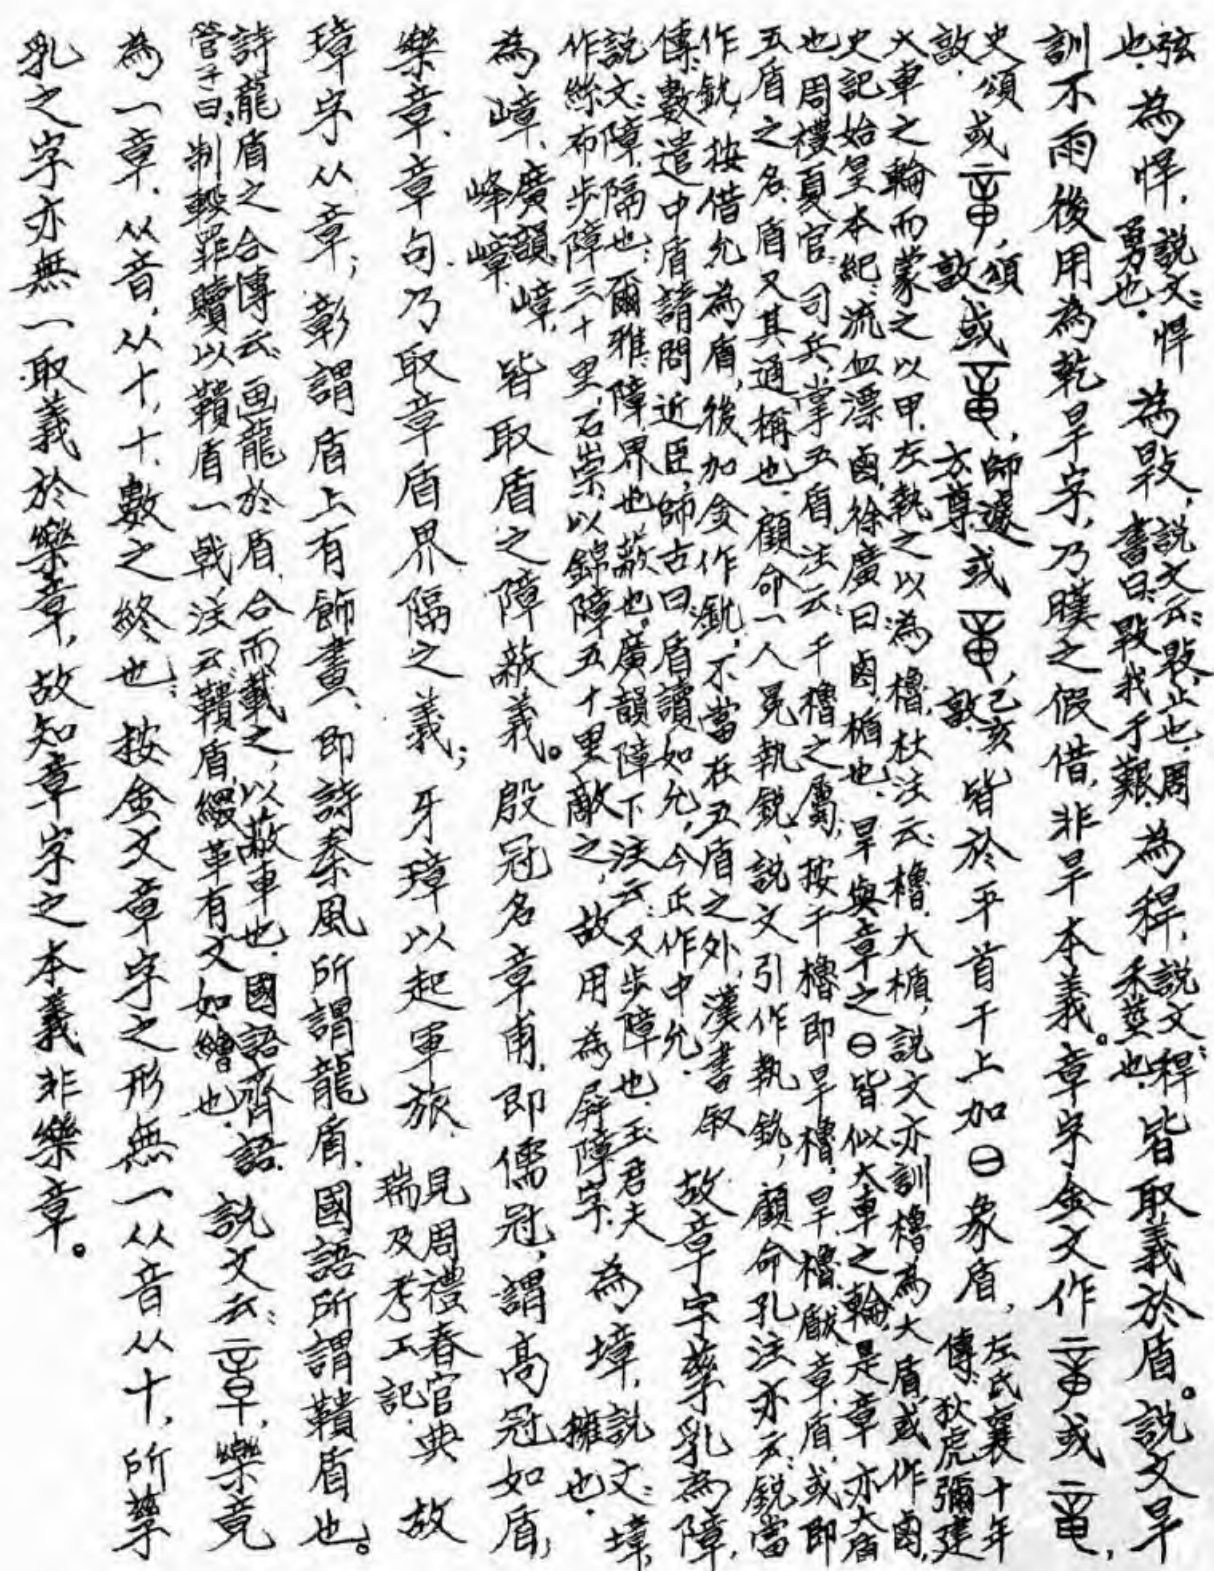 弦也、為悍、說文：悍勇也、為敤、說文云：敤止也、周書曰：敤我于艱、為稈、說文：稈禾莖也、皆取義於盾。說文旱
訓不雨後用為乾旱字，乃暵之假借，非旱本義。章字金文作或，
史頌敦、或頌敦或師遽方尊或乙亥敦、皆於平首干上加⊖象盾，左氏襄十年傳、狄虒彌建
大車之輪而蒙之以甲、左執之以為櫓、杜注云：櫓、大楯，說文亦訓櫓為大盾、或作鹵、
史記始皇本紀：流血漂鹵、徐廣曰鹵、楯也、旱與章之⊖皆似大車之輪，是章亦大盾
也周禮夏官、司兵、掌五盾、注云：干櫓之屬、按干櫓即旱櫓，旱、櫓、瞂、章、盾、或即
五盾之名、盾又其通稱也、顧命一人冕執銳、說文引作執鈗，顧命孔注亦云：銳當
作鈗，按借允為盾，後加金作鈗，不當在五盾之外，漢書叙
傳、數遣中盾請問近臣，師古曰：盾讀如允，今正作中允、故章字孳乳為障，
說文：障、隔也：爾雅、障、界也、蔽也、廣韻障下注云：又步障也、王君夫
作絲布步障三十里，石崇以錦障五十里敵之，故用為屏障字、為墇，說文：墇，擁也、
為嶂、廣韻嶂，峰嶂、皆取盾之障蔽義。殷冠名章甫，即儒冠，謂高冠如盾；
樂章、章句、乃取章盾界隔之義；牙璋以起軍旅、見周禮春官典瑞及考工記、故
璋字从章；彰謂盾上有飾畫、即詩秦風所謂龍盾、國語所謂鞼盾也。
詩龍盾之合傳云：画龍於盾、合而載之，以蔽車也、國語齊語、
管子曰：制輕罪贖以鞼盾一戟、注云：鞼盾，綴革有文如繪也、說文云：章，樂竟
為一章、从音，从十，十、數之終也：按金文章字之形無一从音从十，所孳
乳之字亦無一取義於樂章，故知章字之本義非樂章。